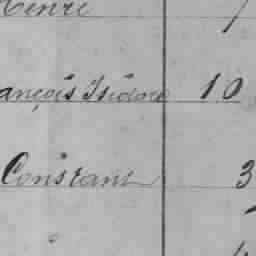 Henri
ançois Isidore 10
Constant 3